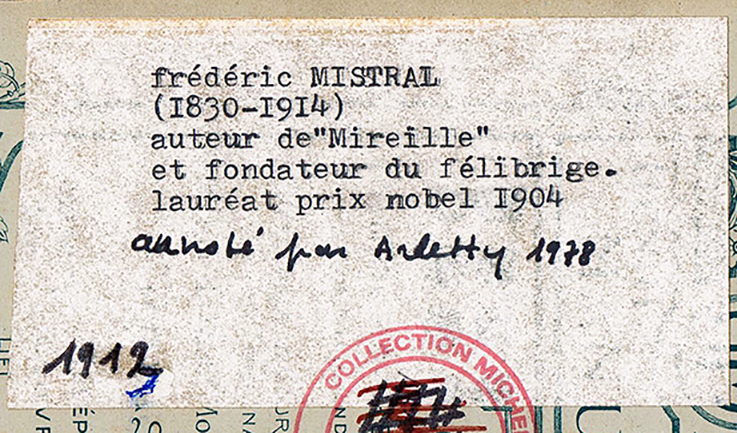 frédéric MISTRAL
(1830-1914)
auteur de"Mireille"
et fondateur du félibrige.
lauréat prix nobel 1904
annoté par Arletty 1978
1912
COLLECTION MICHE